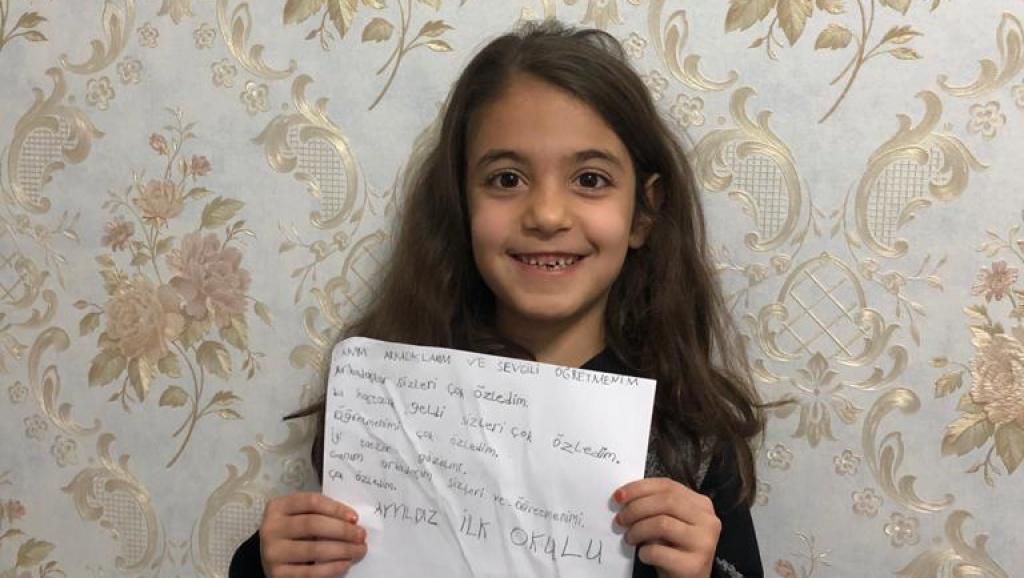 ANIM ARKADAŞLARIM VE SEVGİLİ ÖĞRETMENİM
Arkadaşlar sizleri çok özledim.
bu geldi sizleri çok özledim.
Öğretmenimi çok özledim.
İyi
canım arkadaşım sizleri ve öğretmenimi.
çok özledim.
AYYILDIZ İLK OKULU